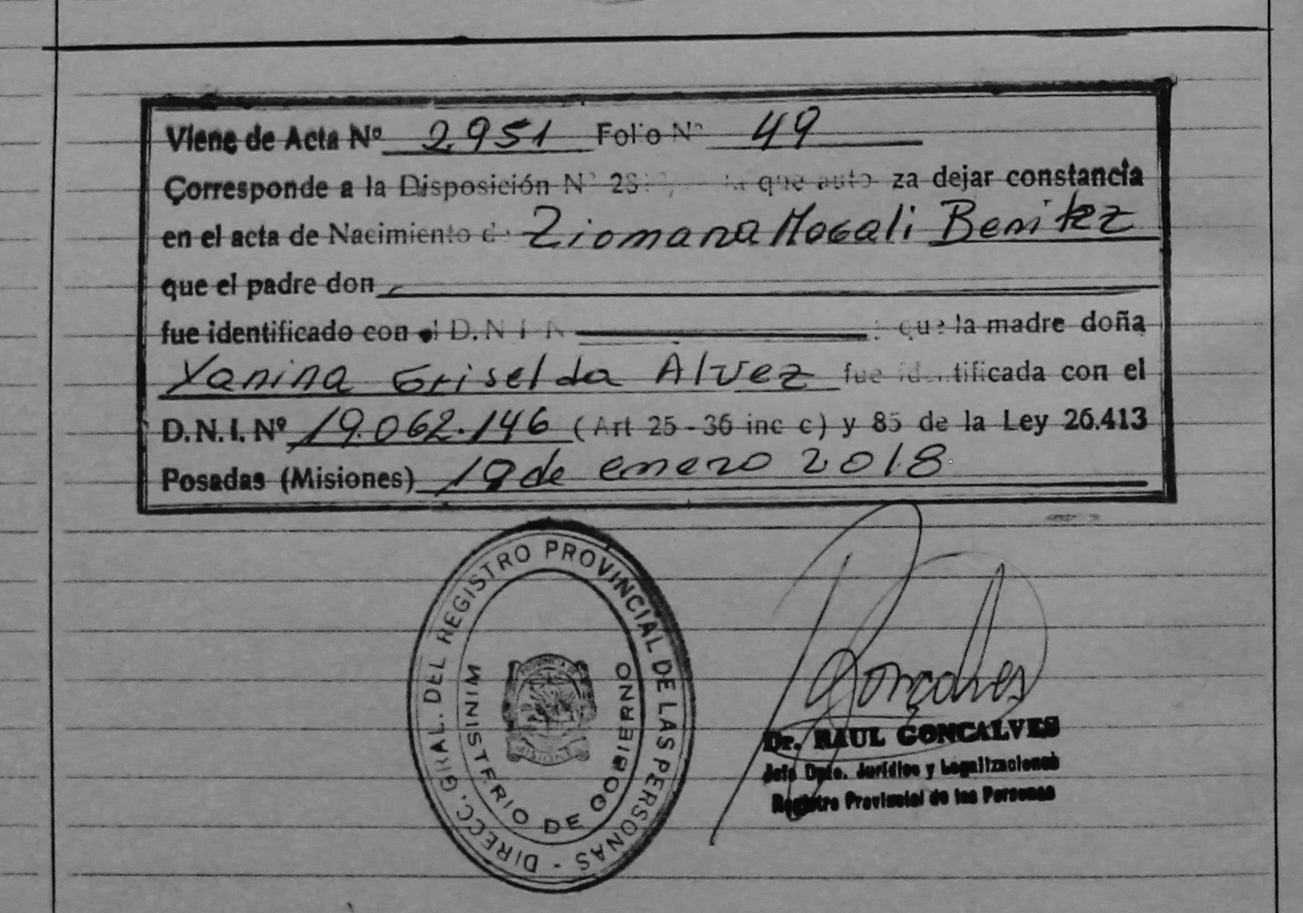 Viene de Acta Nº 2.951 Folio Nº 49
Corresponde a la Disposición Nº que autoriza dejar constancia
en el acta de Nacimiento de Ziomara Magali Benitez
que el padre don
fue identificado con el D.N.I. Nº que la madre doña
Yanina Griselda Alvez fue identificada con el
D.N.I. Nº 19.062.146 (Art 25-36 inc c) y 85 de la Ley 26.413
Posadas (Misiones) 19 de enero 2018
DIRECC. GRAL. DEL REGISTRO PROVINCIAL DE LAS PERSONAS -
MINISTERIO DE GOBIERNO
PROVINCIA DE
MISIONES
Gonçalves
Dr. RAUL GONCALVES
Jefe Dpto. Jurídico y Legalizaciones
Registro Provincial de las Personas